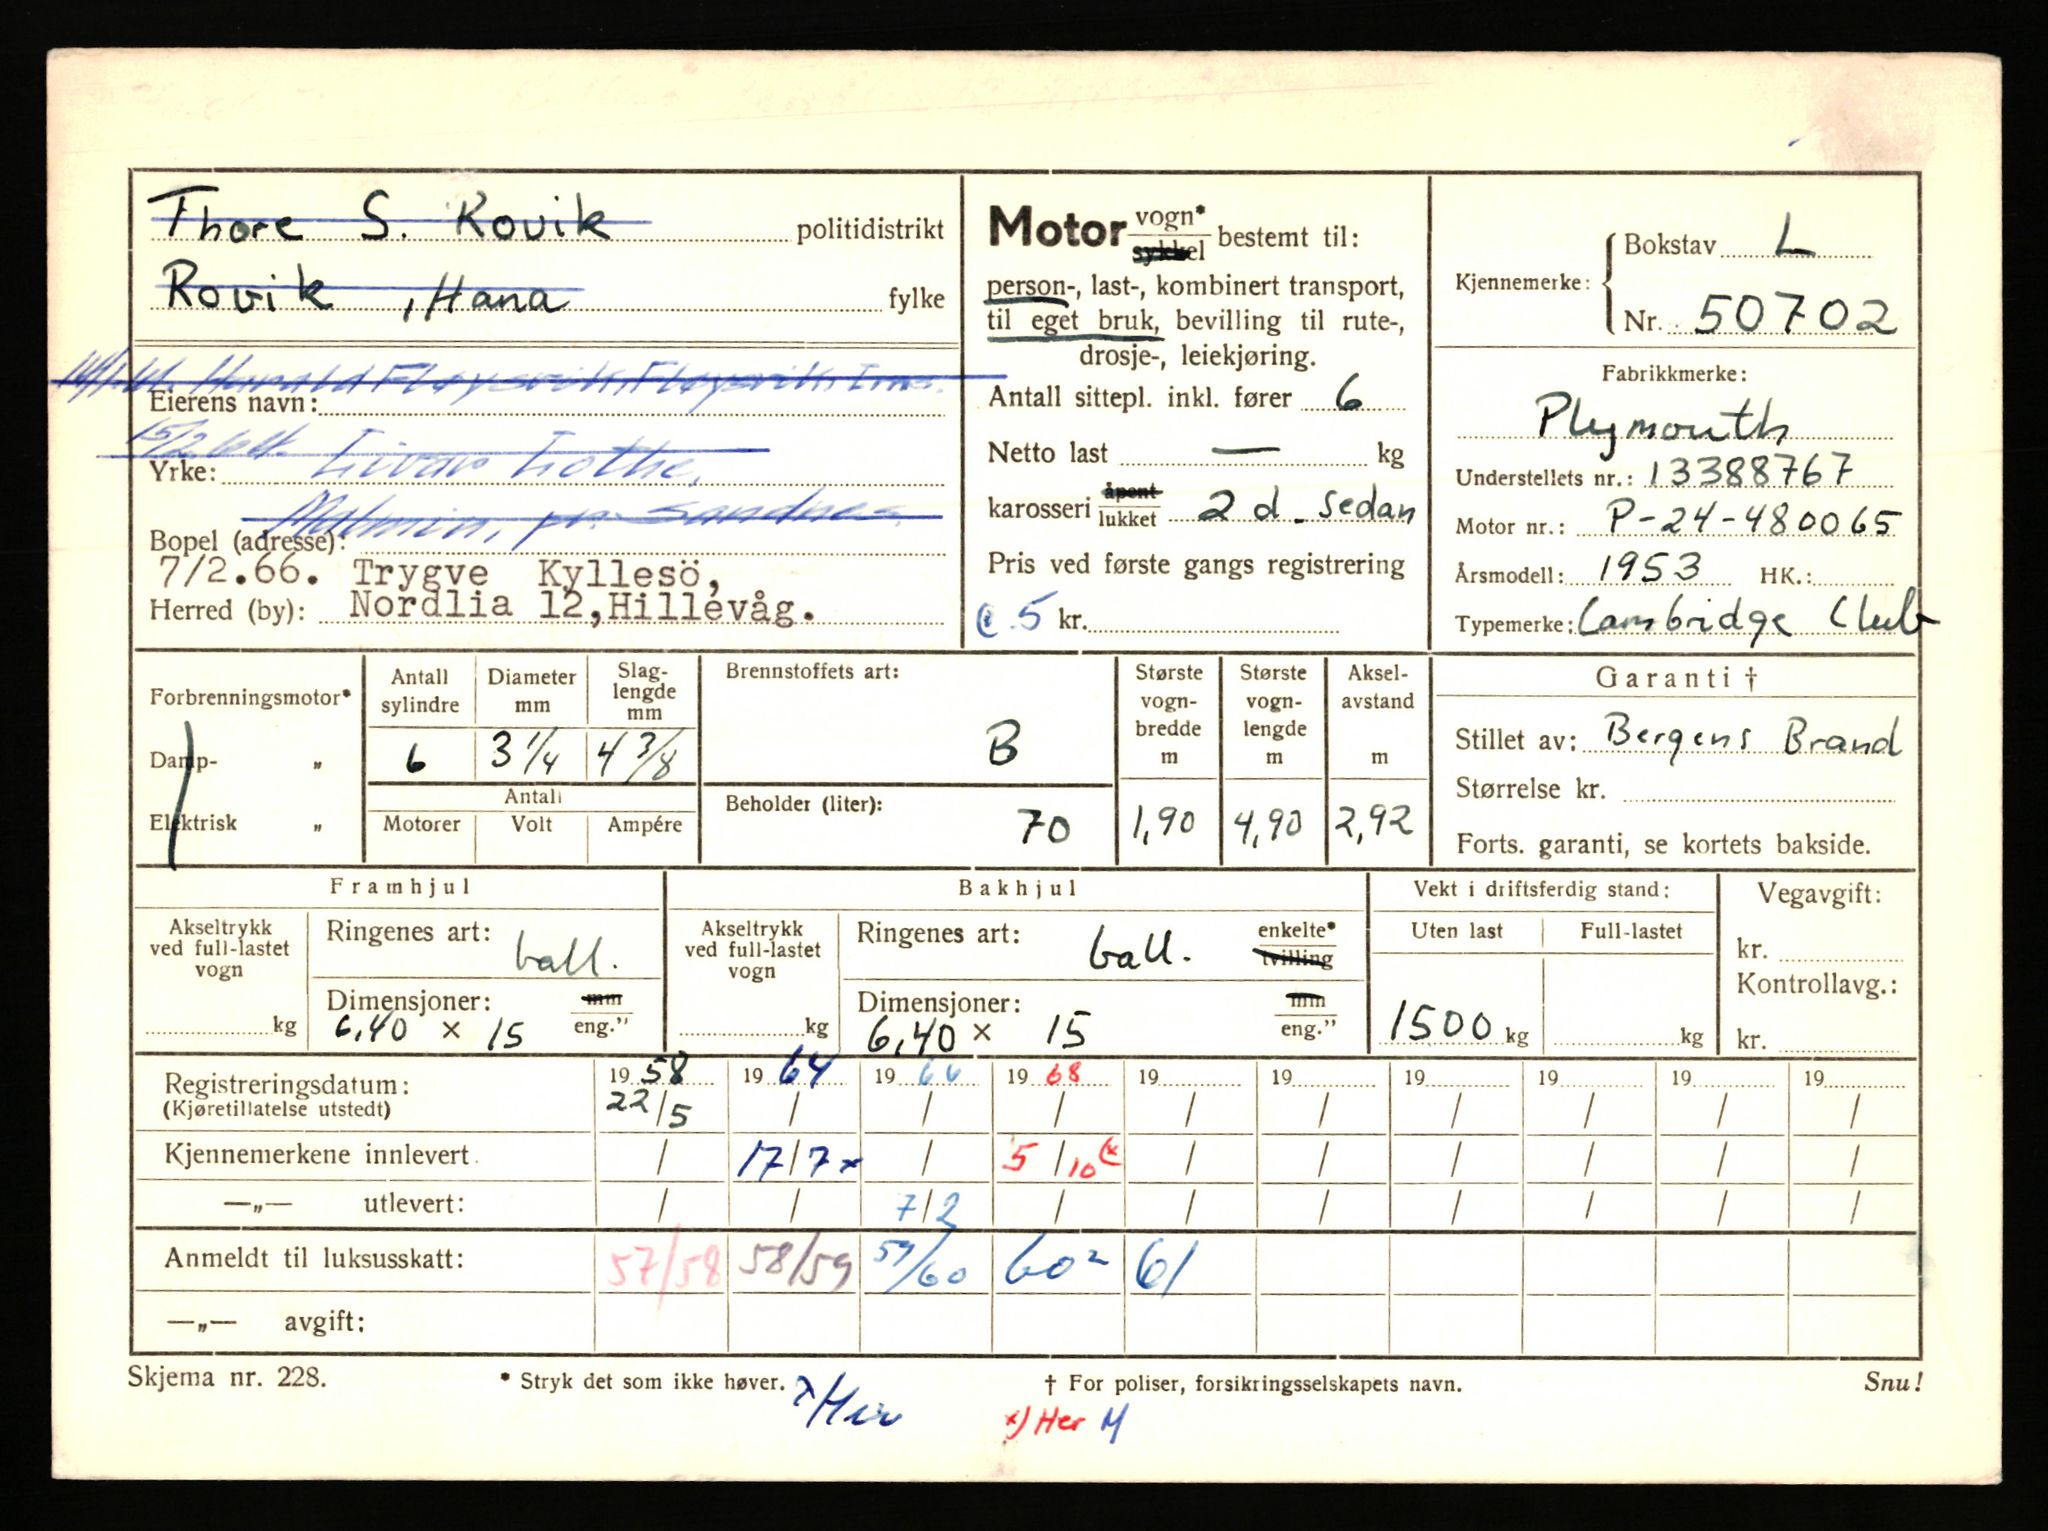 Thore S. Rovik politidistrikt
Rovik, Hana fylke
Harald Fløysvik, Fløysvik, Ims.
Eierens navn:
15/2 64. Lothe,
Yrke:
Malmin, pr. Sandnes
Bopel (adresse):
7/2.66. Trygve Kyllesö,
Herred (by): Nordlia 12, Hillevåg.
Motor vogn* sykkel bestemt til:
person-, last-, kombinert transport,
til eget bruk, bevilling til rute-,
drosje-, leiekjøring.
Antall sittepl. inkl. fører 6
Netto last — kg
karosseri åpent lukket 2 d. sedan
Pris ved første gangs registrering
5 kr.
Kjennemerke: Bokstav L
Nr. 50702
Fabrikkmerke:
Plymouth
Understellets nr.: 13388767
Motor nr.: P-24-480065
Årsmodell: 1953 HK.:
Typemerke: Cambridge Club
Forbrenningsmotor*
Damp- „
Elektrisk „
Antall sylindre 6
Diameter mm 3 1/4
Slag-lengde mm 4 3/8
Antall
Motorer Volt Ampére
Brennstoffets art: B
Beholder (liter): 70
Største vogn-bredde m 1,90
Største vogn-lengde m 4,90
Aksel-avstand m 2,92
Garanti †
Stillet av: Bergens Brand
Størrelse kr.
Forts. garanti, se kortets bakside.
Framhjul
Akseltrykk ved full-lastet vogn kg
Ringenes art: ball.
Dimensjoner: mm eng.”
6,40 x 15
Bakhjul
Akseltrykk ved full-lastet vogn kg
Ringenes art: ball. enkelte* tvilling
Dimensjoner: mm eng.”
6,40 x 15
Vekt i driftsferdig stand:
Uten last Full-lastet
1500 kg kg
Vegavgift:
kr.
Kontrollavg.:
kr.
Registreringsdatum: 19 58 19 64 19 66 19 68 19 19 19 19 19 19
(Kjøretillatelse utstedt) 22/5 / / / / / / / / /
Kjennemerkene innlevert / 17/7 x / 5/10 (x / / / / / /
—„— utlevert: / / 7/2 / / / / / / /
Anmeldt til luksusskatt: 57/58 58/59 59/60 60² 61
—„— avgift:
Skjema nr. 228. * Stryk det som ikke høver. † For poliser, forsikringsselskapets navn. Snu!
x/Her x) Her M